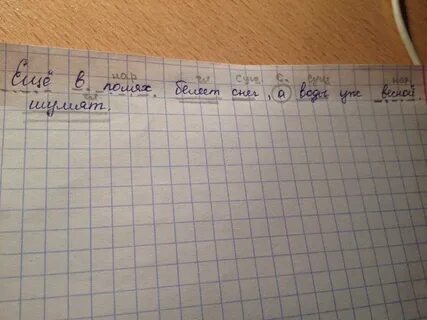 нар гл сущ с. сущ нар.
Ещё в полях белеет снег, а воды уж весной
гл
шумят.